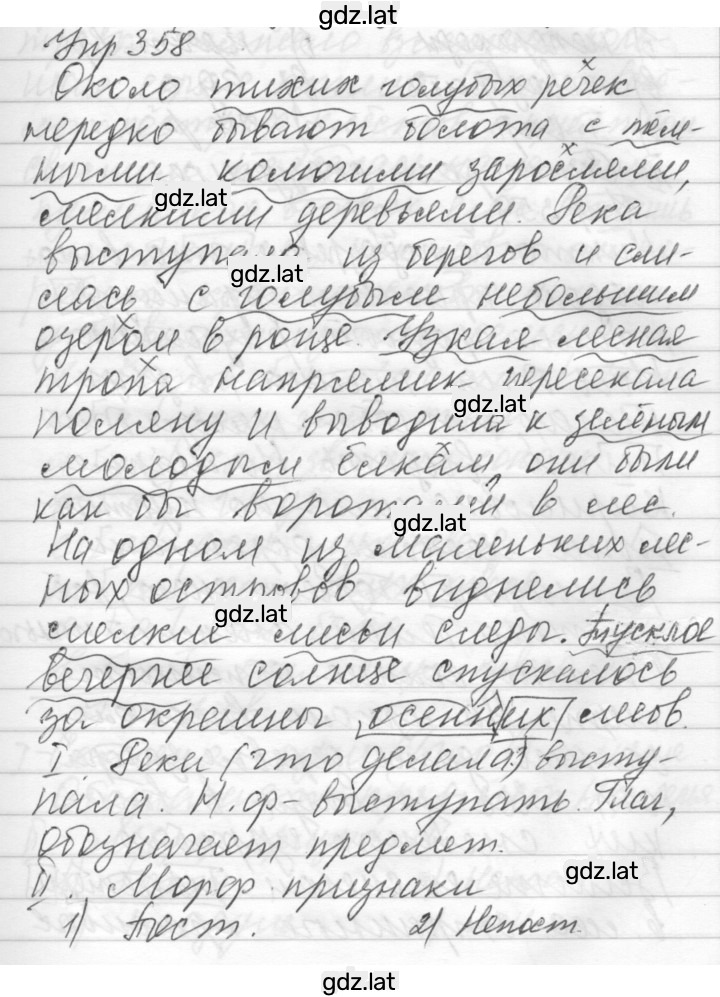 gdz.lat
Упр 358
Около тихих голубых речек
нередко бывают болота с тём-
ными колючими зарослями,
gdz.lat
мелкими деревьями. Река
выступала из берегов и сли-
gdz.lat
лась с голубым небольшим
озером в роще. Узкая лесная
тропа напрямик пересекала
gdz.lat
поляну и выводила к зелёным
молодым ёлкам, они были
как бы воротами в лес.
gdz.lat
На одном из маленьких лес-
ных островов виднелись
gdz.lat
мелкие лисьи следы. Тусклое
вечернее солнце спускалось
за окраины осенних лесов.
I Река (что делала?) высту-
пала. Н.ф - выступать. Глаг,
обозначает предмет.
gdz.lat
II Морф. признаки
1) Пост. 2) Непост.
gdz.lat